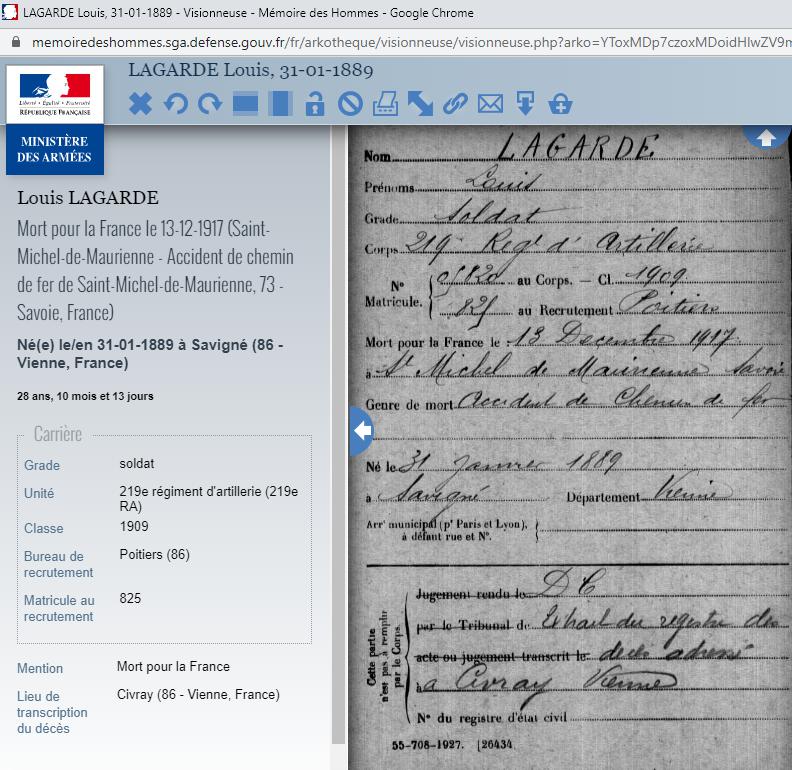 LAGARDE Louis, 31-01-1889 - Visionneuse - Mémoire des Hommes - Google Chrome
memoiredeshommes.sga.defense.gouv.fr/fr/arkotheque/visionneuse/visionneuse.php?arko=YToxMDp7czoxMDoidHlwZV9m
LAGARDE Louis, 31-01-1889
Liberté • Égalité • Fraternité
RÉPUBLIQUE FRANÇAISE
MINISTÈRE
DES ARMÉES
Louis LAGARDE
Mort pour la France le 13-12-1917 (Saint-
Michel-de-Maurienne - Accident de chemin
de fer de Saint-Michel-de-Maurienne, 73 -
Savoie, France)
Né(e) le/en 31-01-1889 à Savigné (86 -
Vienne, France)
28 ans, 10 mois et 13 jours
Carrière
Grade soldat
Unité 219e régiment d'artillerie (219e
RA)
Classe 1909
Bureau de
recrutement Poitiers (86)
Matricule au
recrutement 825
Mention Mort pour la France
Lieu de
transcription
du décès Civray (86 - Vienne, France)
Nom LAGARDE
Prénoms Louis
Grade Soldat
Corps 219e Regt d'Artillerie
N° au Corps. — Cl. 1909
Matricule. 825 au Recrutement Poitiers
Mort pour la France le 13 Decembre 1917
à St Michel de Maurienne Savoie
Genre de mort Accident de Chemin de fer
Né le 31 janvier 1889
à Savigné Département Vienne
Arrt municipal (pr Paris et Lyon),
à défaut rue et N°.
Cette partie
n'est pas à remplir
par le Corps.
Jugement rendu le D C
par le Tribunal de Extrait du registre des
acte ou jugement transcrit le décès adressé
à a Civray Vienne
N° du registre d'état civil
55-708-1927. [26434.